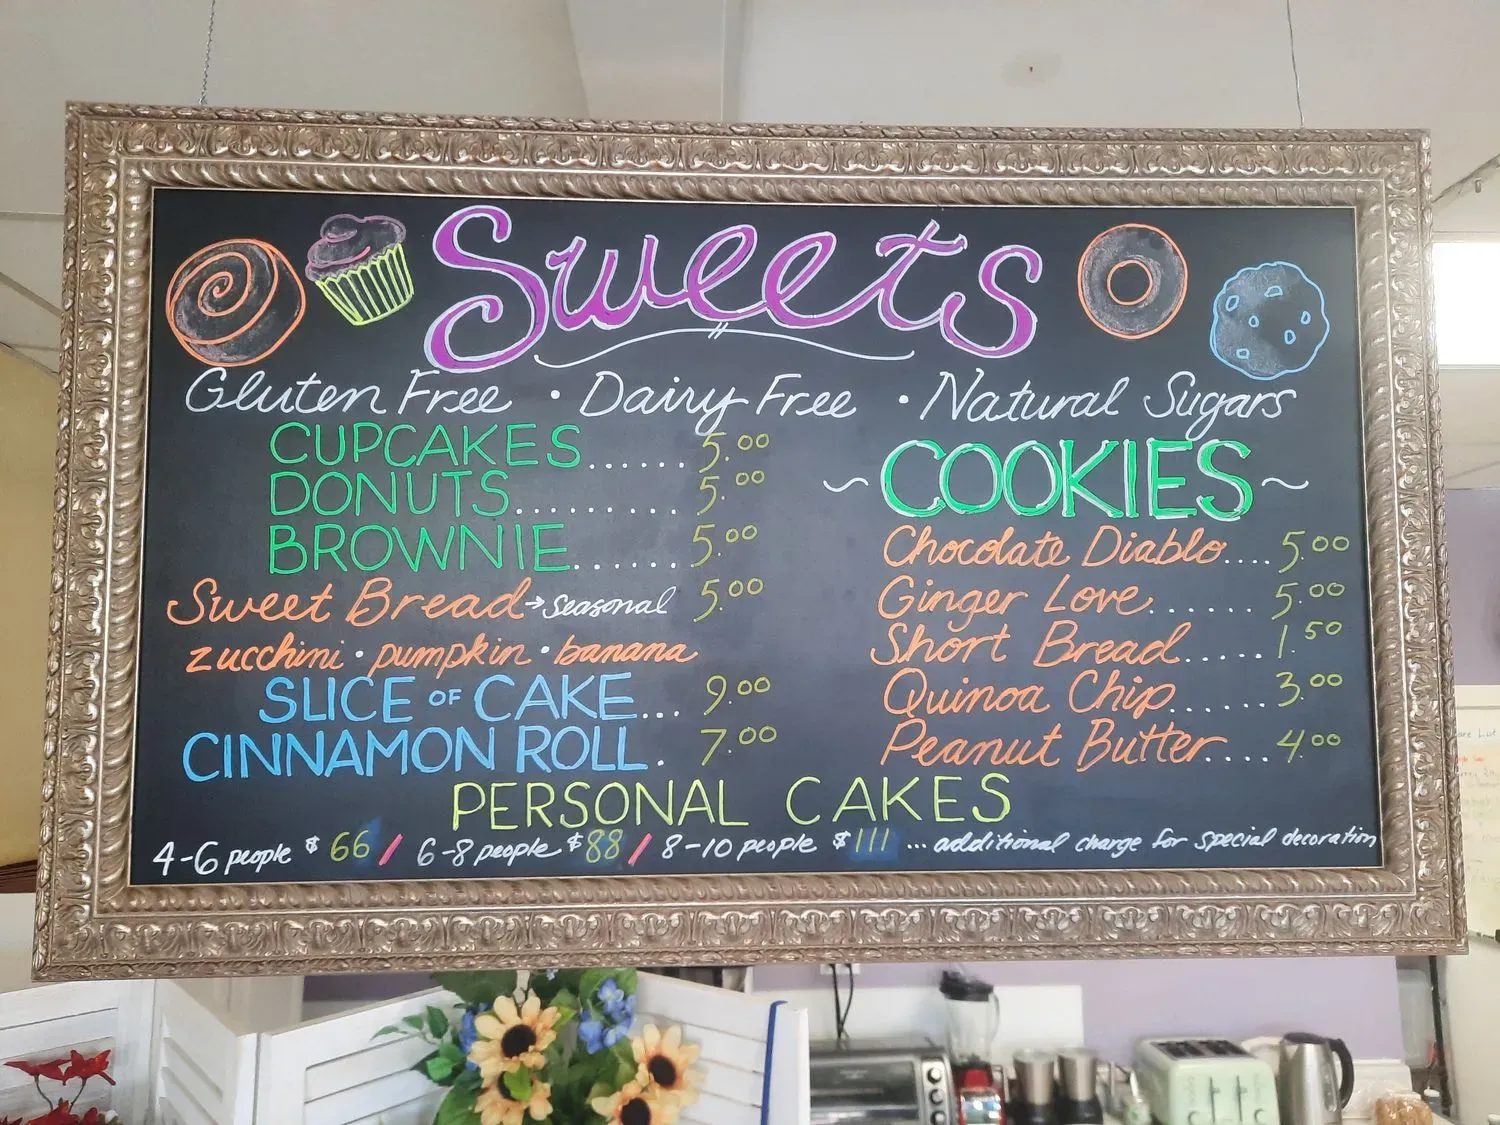 Sweets
Gluten Free · Dairy Free · Natural Sugars
CUPCAKES...... 5.00
DONUTS......... 5.00
BROWNIE...... 5.00
Sweet Bread → seasonal 5.00
zucchini · pumpkin · banana
SLICE OF CAKE... 9.00
CINNAMON ROLL. 7.00
~COOKIES~
Chocolate Diablo.... 5.00
Ginger Love...... 5.00
Short Bread..... 1.50
Quinoa Chip...... 3.00
Peanut Butter.... 4.00
PERSONAL CAKES
4-6 people $ 66 / 6-8 people $ 88 / 8-10 people $ 111 ... additional charge for special decoration